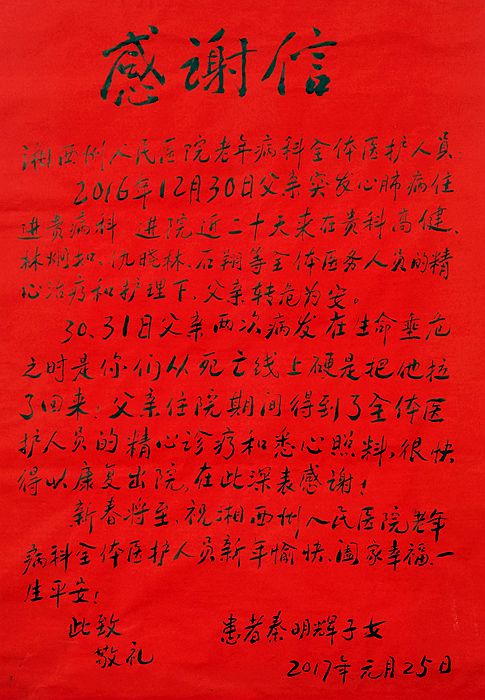 感谢信
湘西州人民医院老年病科全体医护人员:
2016年12月30日父亲突发心肺病住
进贵病科 进院近二十天来在贵科高健、
林娴如、仉晓林、石翔等全体医务人员的精
心治疗和护理下,父亲转危为安。
30、31日父亲两次病发在生命垂危
之时是你们从死亡线上硬是把他拉
了回来;父亲住院期间得到了全体医
护人员的精心诊疗和悉心照料,很快
得以康复出院,在此深表感谢!
新春将至,祝湘西州人民医院老年
病科全体医护人员新年愉快、阖家幸福、一
生平安!
此致 患者秦明辉子女
敬礼 2017年元月25日